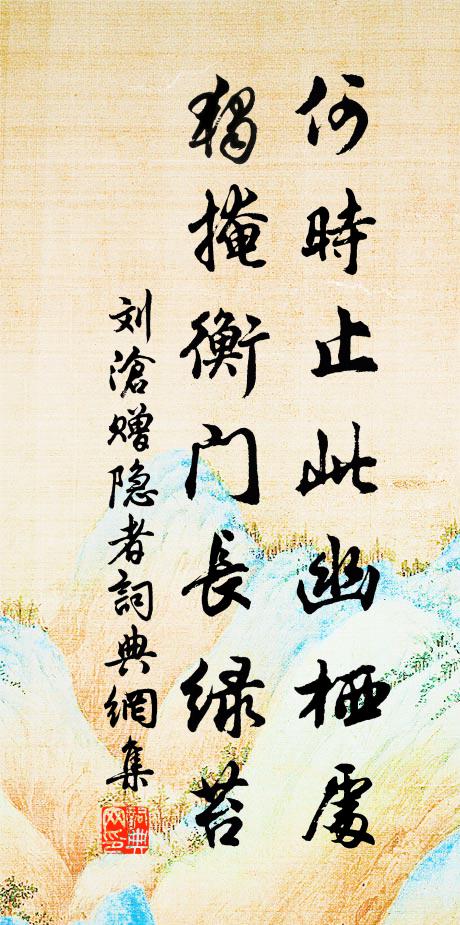 何時止此幽栖處
獨掩衡门長绿苔
刘滄赠隐者詞典網集
詞典
网印